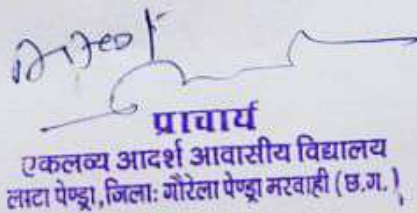 प्राचार्य
एकलव्य आदर्श आवासीय विद्यालय
लाटा पेण्ड्रा, जिला: गौरेला पेण्ड्रा मरवाही (छ.ग.)